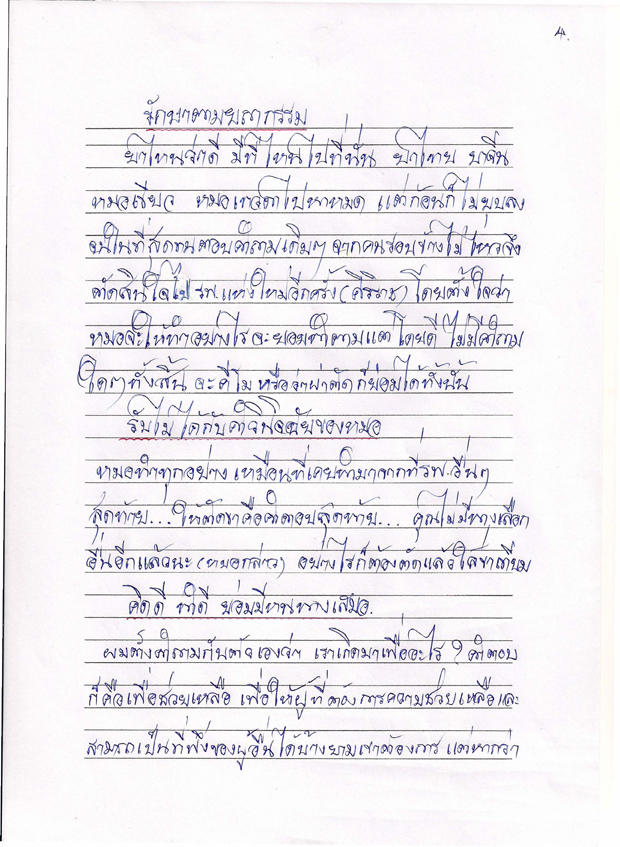 4.
รักษาตามยถากรรม
ยาไหนว่าดี มีที่ไหนไปที่นั่น ยาไทย ยาจีน
หมอเขียว หมอเทวดาไปหาหมด แต่ก้อนก็ไม่ยุบลง
จนในที่สุดทนตอบคำถามเดิมๆ จากคนรอบข้างไม่ไหวจึง
ตัดสินใจไป รพ.แห่งใหม่อีกครั้ง (ศิริราช) โดยตั้งใจว่า
หมอจะให้ทำอย่างไรจะยอมทำตามแต่โดยดี ไม่มีคำถาม
ใดๆ ทั้งสิ้น จะคีโม หรือว่าผ่าตัด ก็ย่อมได้ทั้งนั้น
รับไม่ได้กับคำวินิจฉัยของหมอ
หมอทำทุกอย่าง เหมือนที่เคยทำมาจากที่รพ.อื่นๆ
สุดท้าย... ให้ตัดขาคือคำตอบสุดท้าย... คุณไม่มีทางเลือก
อื่นอีกแล้วนะ (หมอกล่าว) อย่างไรก็ต้องตัดแล้วใส่ขาเทียม
คิดดี ทำดี ย่อมมีหนทางเสมอ.
ผมตั้งคำถามกับตัวเองว่า เราเกิดมาเพื่ออะไร ? คำตอบ
ก็คือเพื่อช่วยเหลือ เพื่อให้ผู้ที่ต้องการความช่วยเหลือและ
สามารถเป็นที่พึ่งของผู้อื่นได้บ้างยามเขาต้องการ แต่หากว่า